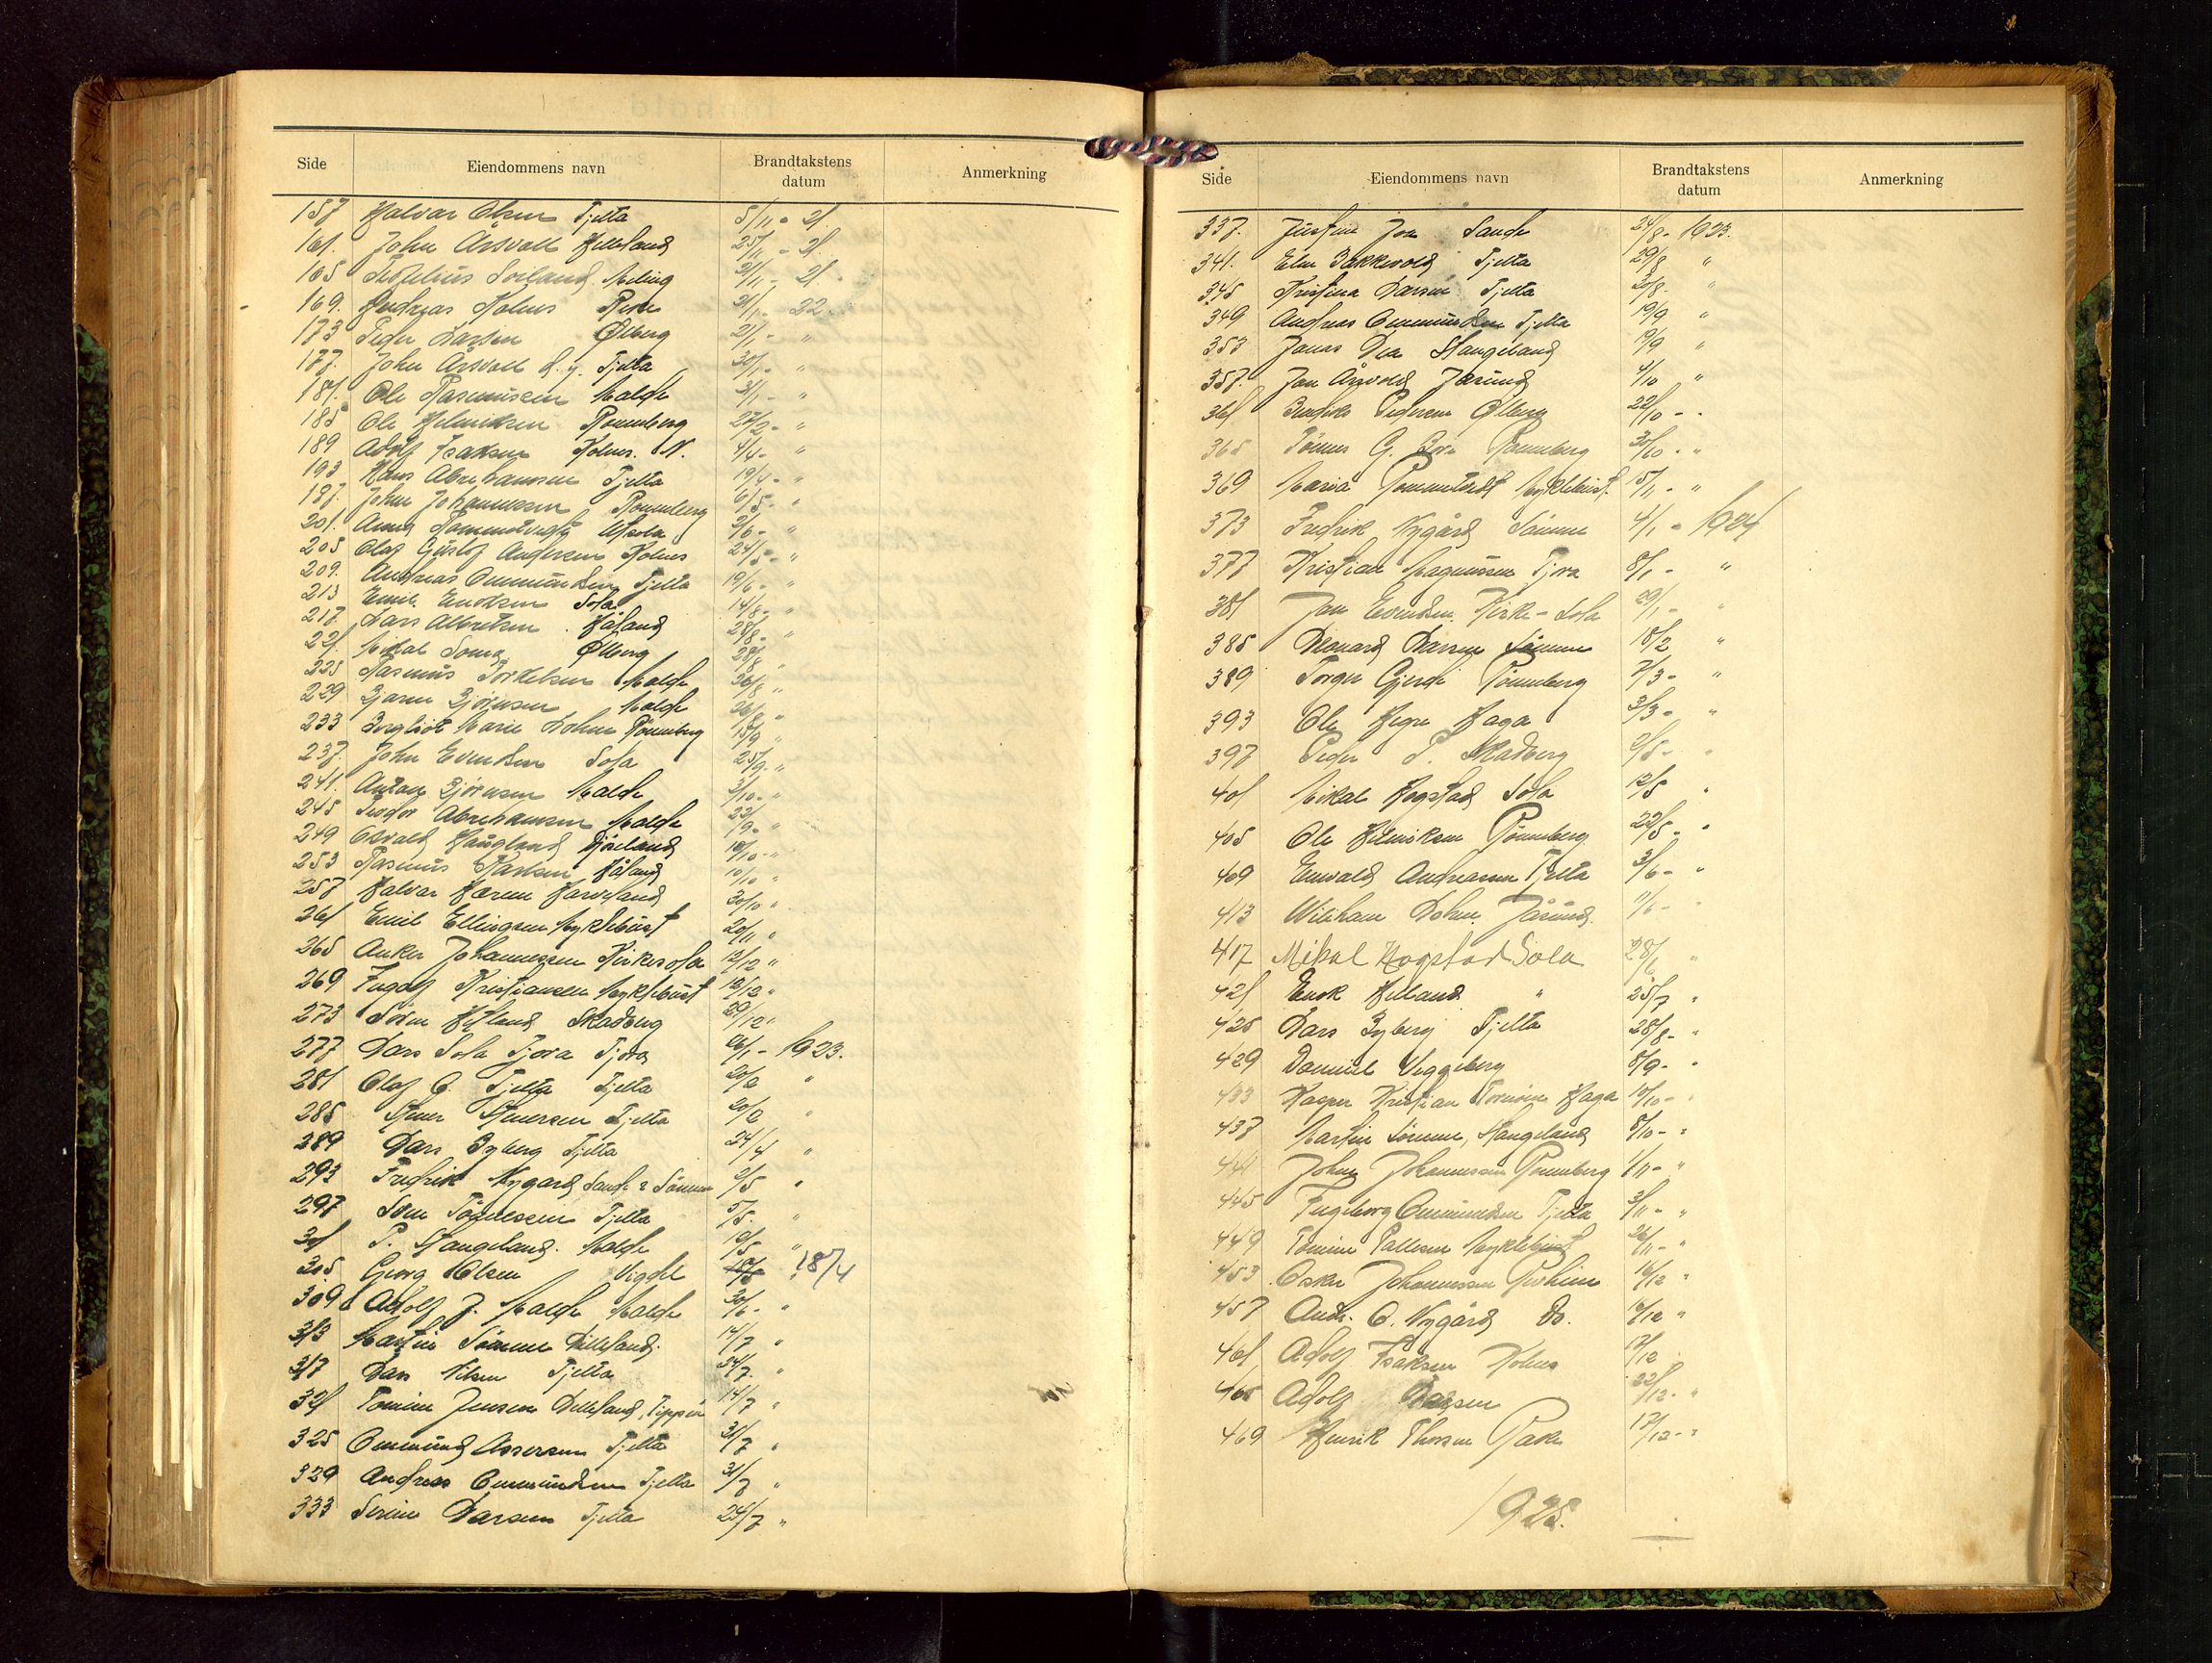 Side Eiendommens navn Brandtakstens datum Anmerkning
157 Halvar Olsen Tjelta 5/11 - 21.
161. John Årsvoll Hilleland 25/11 - 21.
165 Sørland Meling 21/11 - 21.
169. Andreas Kolnes Rege 21/1 - 22.
173 Peder Larsen Ølberg 21/1 - "
177. John Årsvoll d. y. Tjelta 30/1 - "
181. Ole Rasmussen Malde 31/1 - "
185 Ole Helmiksen Rønneberg 27/2 - "
189 Adolf Isaksen Kolnes. N. 4/4 - "
193 Hans Abrahamsen Tjelta 19/4 - "
197. John Johannessen Rønneberg 6/5 - "
201. Anna Utsola 2/6 - "
205 Olaf Gustof Andersen Kolnes 24/5 - "
209. Andreas Ommundsen Tjelta 19/6 - "
213 Emil Enoksen Sola 14/8 - "
217. Lars Albretsen Håland 28/8 - "
221. Mikal Soma Ølberg 28/8 "
225 Rasmus Torkelsen Malde 26/8 "
229 Bjarne Bjørnsen Malde 26/8 "
233 Bergliot Marie Dohm Rønneberg 15/9 "
237. John Evendsen Sola 25/9 - "
241. Anton Bjørnsen Malde 3/10 - "
245 Teodor Abrahamsen Malde 22/9 - "
249 Osvald Haugland 10/10 - "
253 Rasmus Håland 10/10 "
257 Halvar Hærem Harveland 30/10 "
261 Emil Ellingsen Myklebust 20/11 "
265 Anker Johannessen Kirkesola 12/12 "
269 Ingolf Kristiansen Myklebust 12/12 "
273 Søren Helland Skadberg 29/12 "
277 Lars Sola Tjora Tjora 26/1 - 1923.
281 Olaf O. Tjelta Tjelta 20/2 "
285 Stener Stenersen Tjelta 20/2 "
289 Lars Byberg Tjelta 24/4 "
293 Fredrik Nygård Sande & Sømme 2/5 "
297 Sven Tønnessen Tjelta 5/5. "
301 P. Stangeland. Malde 12/5 "
305. Georg Olsen Vigdel " 18/4
309 Adolf J. Malde Malde 30/6 - "
313 Martin Sømme Dilleland. 14/7 "
317 Lars Nilsen Tjelta 24/7. "
321 Tomine Jensen Dilleland, 14/7 "
325 Ommund Assersen Tjelta 31/7 "
329 Andreas Ommundsen Tjelta 31/7 "
333 Serine Larsen Tjelta 25/7 "
Side Eiendommens navn Brandtakstens datum Anmerkning
337. Justine Joa Sande 24/8 - 1923.
341. Elen Bakkevold Tjelta 29/8 "
345 Kristina Larsen Tjelta 20/8 - "
349 Andreas Ommundsen Tjelta 19/9 "
353 Jonas Dea Stangeland 19/9 "
357. Jon Årsvold Jåsund 4/10 "
361 Bendiks Pedersen Ølberg 22/10 - "
365 Tønnes G. Bore Rønneberg 30/10 - "
369 Maria Rommetvedt Myklebust. 15/11 - "
373 Fredrik Nygård Sømme 4/1 - 1924
377 Kristian Magnussen Tjora 8/1 - "
381 Jon Evendsen Kirke-Sola 29/1 - "
385 Leonard Larsen Sømme 18/2 "
389 Torger Gjerde Rønneberg 7/3 - "
393 Ole Hegre Haga 3/3 - "
397 Peder P. Skadberg 2/5 - "
401 Mikal Hogstad Sola 12/5 "
405 Ole Helmiksen Rønneberg. 22/5 - "
409 Enevald Andreassen Tjelta 3/6 - "
413 William Dohm. Jåsund. 11/6 - "
417 Mikal Hogstad Sola 28/6 "
421 Enok Helland " 25/7 "
425 Lars Byberg Tjelta 28/8 - "
429 Daniel Viggeberg 8/9 - "
433 Kasper Kristian Haga 10/10 - "
437 Martin Sømme, Stangeland 8/10 - "
441 John Johannessen Rønneberg 1/11 - "
445 Ingeborg Ommundsen Tjelta 3/11 - "
449 Tomine Pallesen Myklebust 26/11 - "
453 Oskar Johannessen Risheim 16/12 "
457 Andr. O. Nygård Do. 16/12 "
461 Adolf Isaksen Kolnes 17/12
465 Adolf 22/12 - "
469 Henrik Thorsen Røke 17/12 - "
1925.